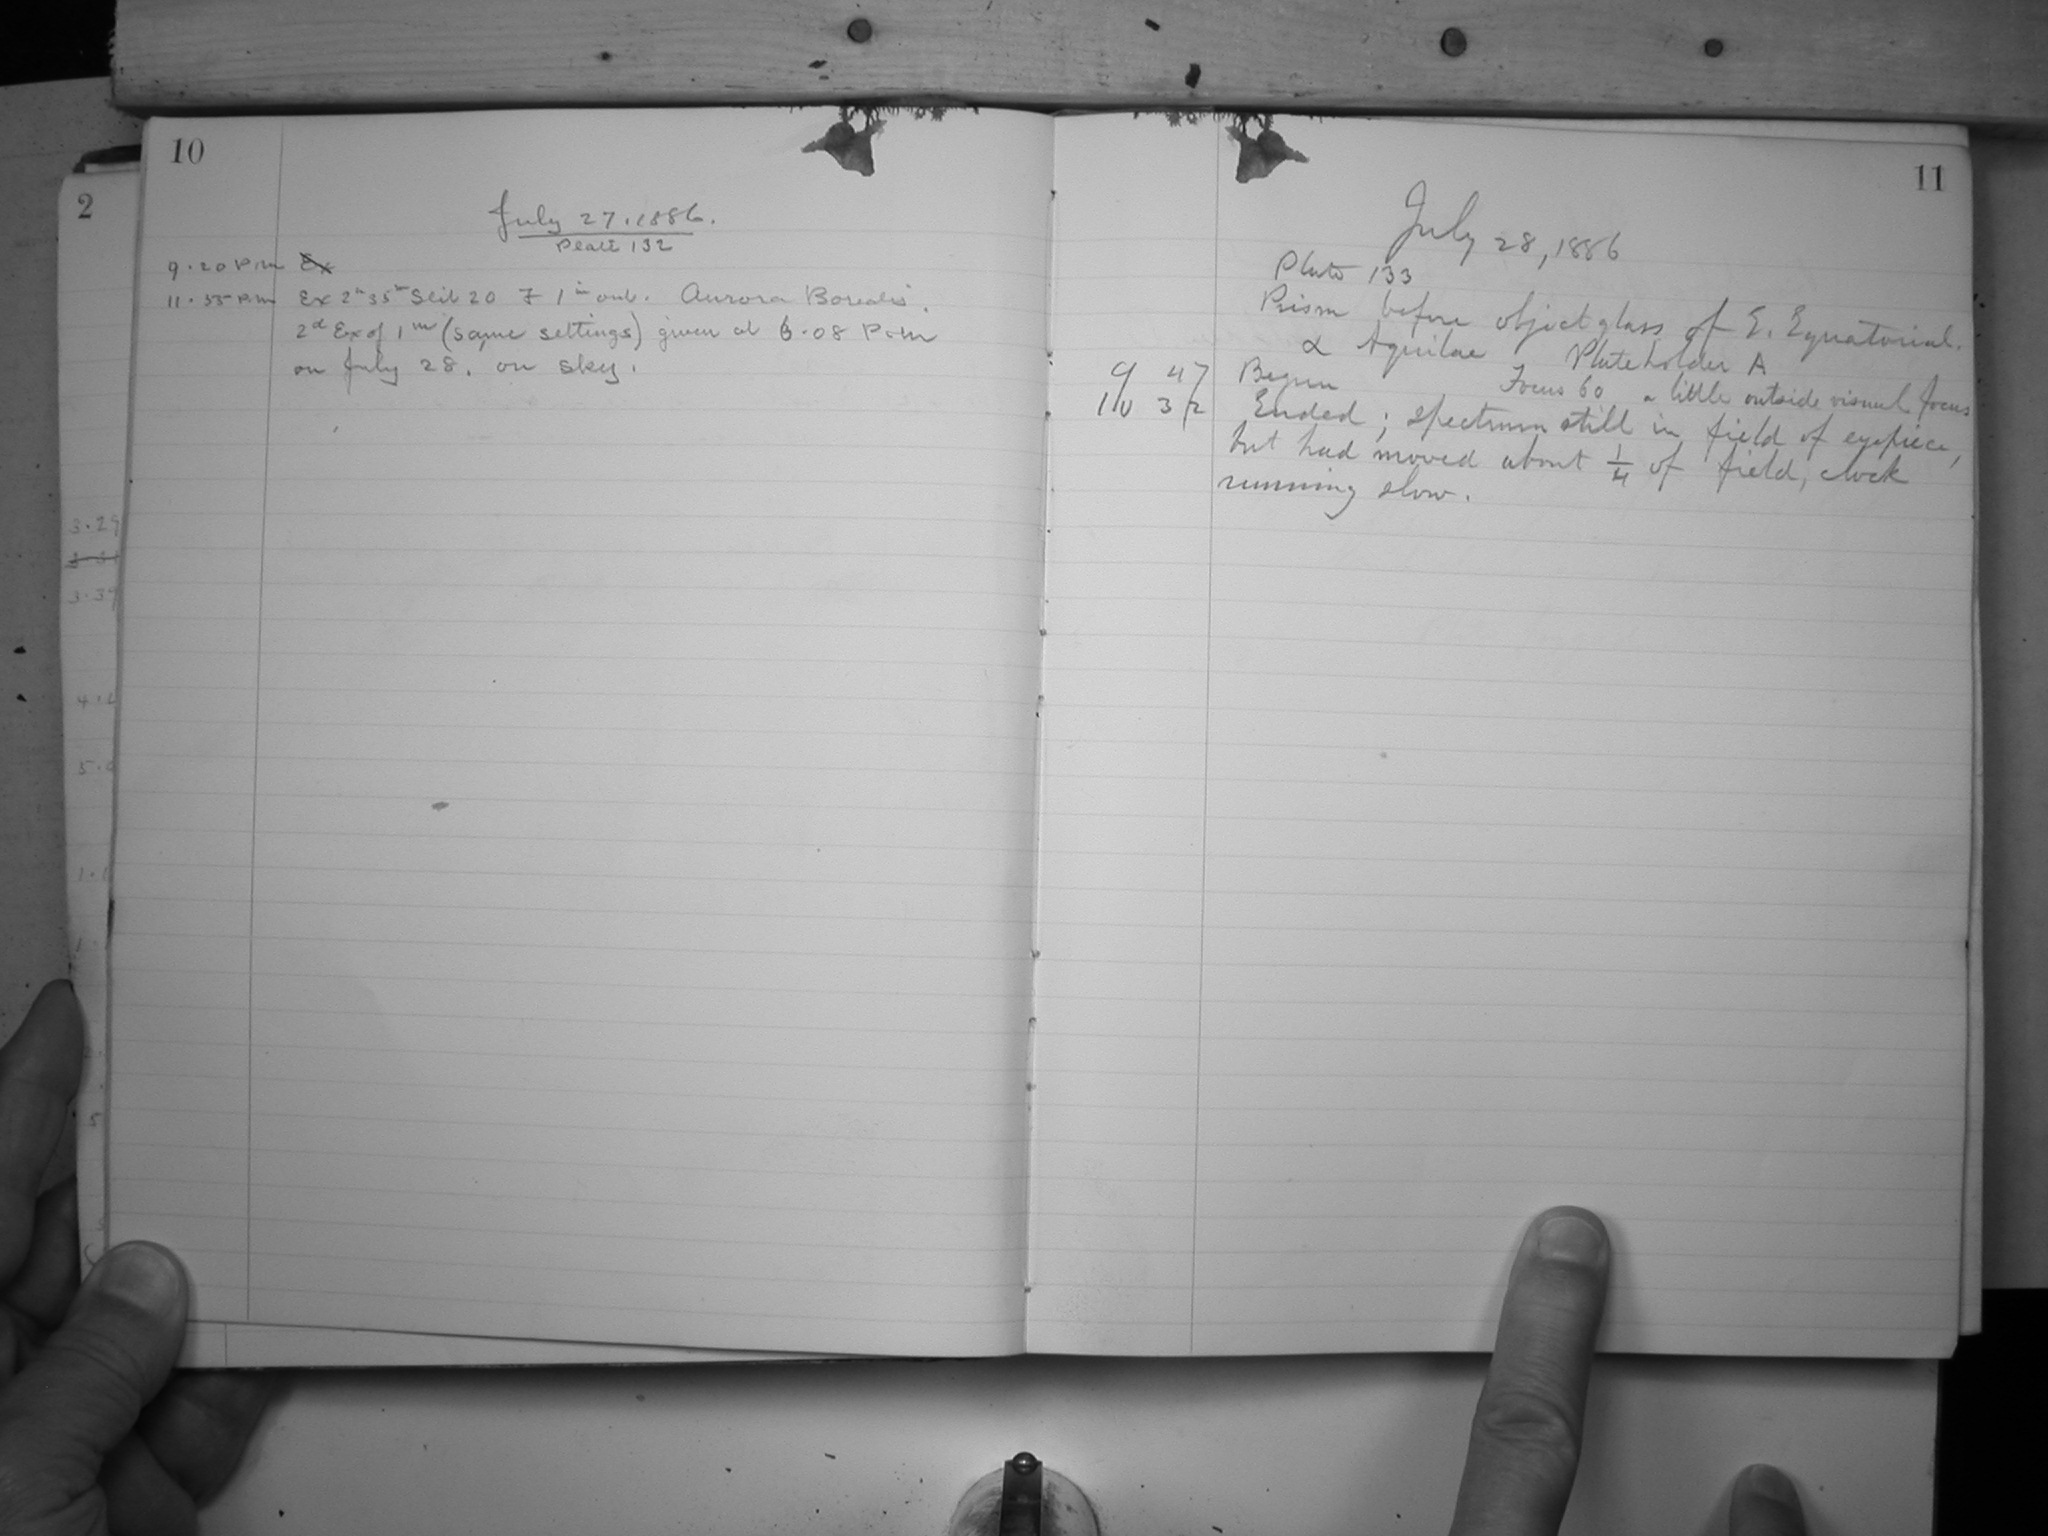 10
July 27. 1886.
Plate 132
9.20 P.m Ex
11.55 P.m Ex 2h 35m Slit 20 F 1 in out. Aurora Borealis.
2d Ex of 1m (same settings) given at 6.08 P.m
on July 28. on sky.
2
3.29
3.39
11
July 28, 1886
Plate 133
Prism before object glass of E. Equatorial.
α Aquilae Plateholder A
9 47 Began Focus 60 a little outside visual focus
10 32 Ended; spectrum still in field of eyepiece,
but had moved about 1/4 of field, clock
running slow.